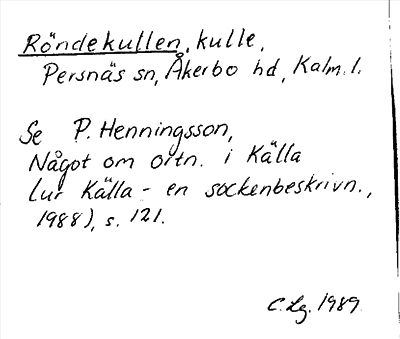 Röndekullen, kulle,
Persnäs sn, Åkerbo hd, Kalm. l.
Se P. Henningsson,
Något om ortn. i Källa
(ur Källa - en sockenbeskrivn.,
1988), s. 121.
C. Lg. 1989